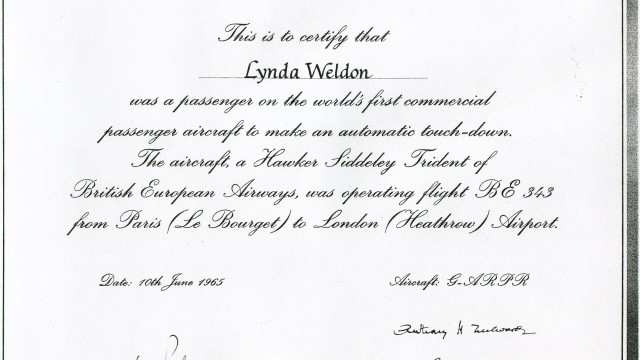 This is to certify that
Lynda Weldon
was a passenger on the world's first commercial
passenger aircraft to make an automatic touch-down.
The aircraft, a Hawker Siddeley Trident of
British European Airways, was operating flight BE 343
from Paris (Le Bourget) to London (Heathrow) Airport.
Date: 10th June 1965 Aircraft: G-ARPR
Anthony H